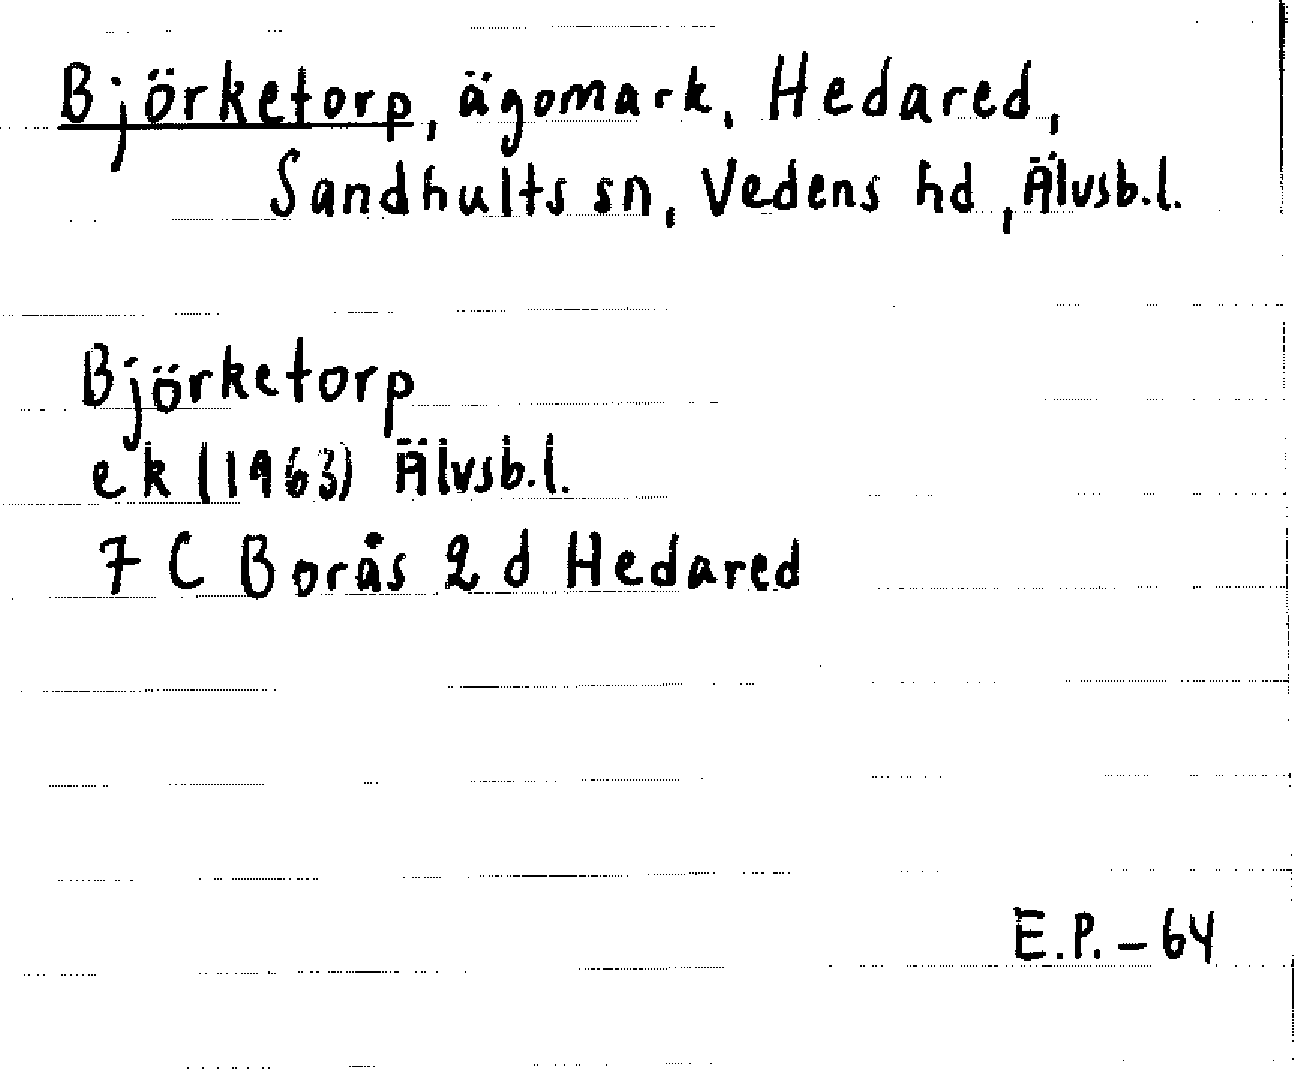 Björketorp, ägomark, Hedared,
Sandhults sn, Vedens hd, Älvsb.l.
Björketorp
ek (1963) Älvsb.l.
7 C Borås 2 d Hedared
E.P. – 64